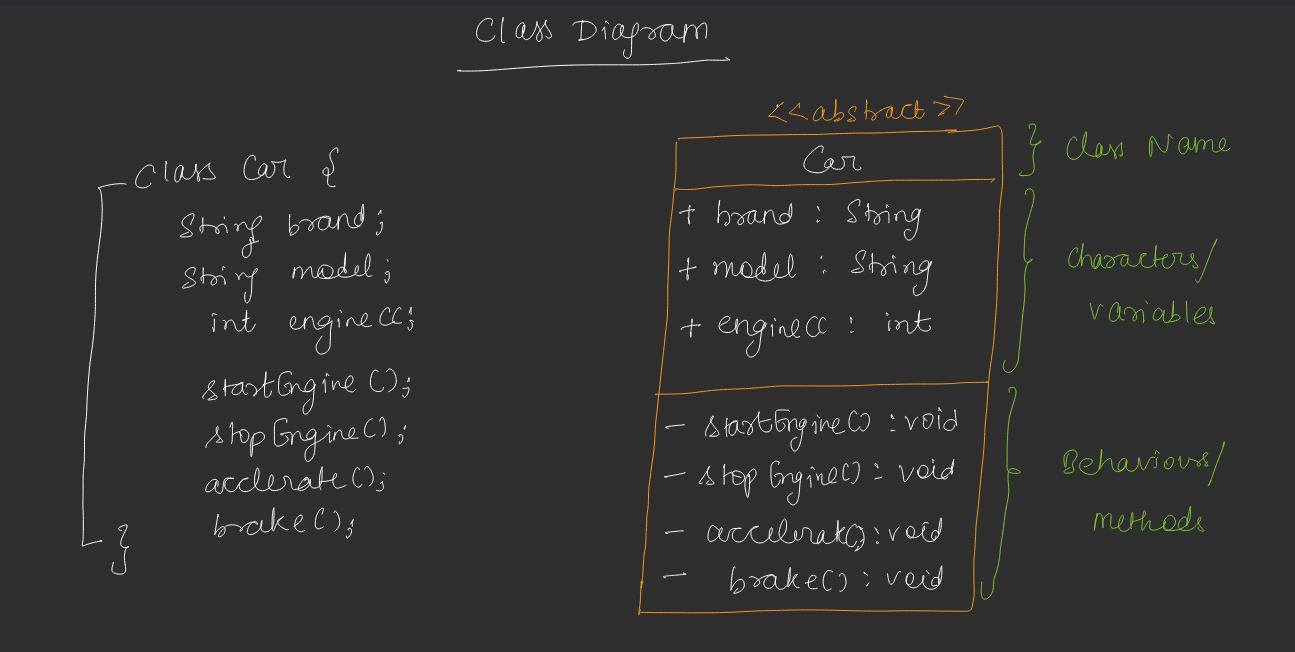 Class Diagram
Class Car {
String brand;
String model;
int engineCC;
startEngine();
stopEngine();
acclerate();
brake();
}
<<abstract>>
Car
+ brand : String
+ model : String
+ engineCC : int
- startEngine() : void
- stopEngine() : void
- accelerate() : void
- brake() : void
} Class Name
} Characters/
variables
} Behaviours/
methods